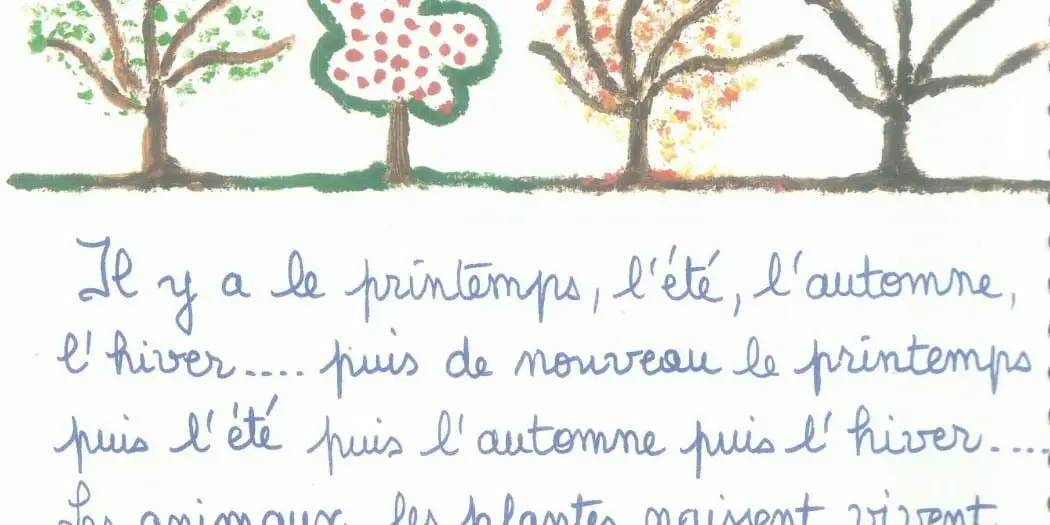 Il y a le printemps, l'été, l'automne,
l'hiver.... puis de nouveau le printemps
puis l'été puis l'automne puis l'hiver....
Les animaux, les plantes naissent vivent